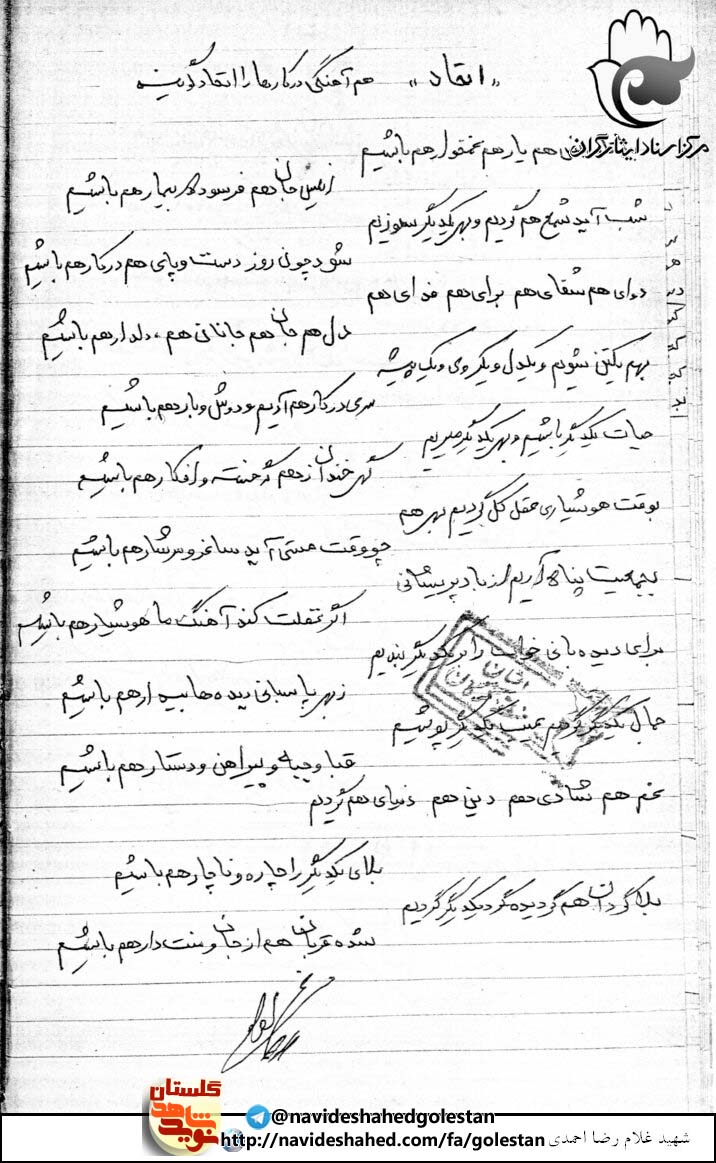 «اتحاد» هم آهنگی در کارها را اتحاد گویند
مرکز اسناد ایثارگران
هم یار هم غمخوار هم باشیم
انیس جان هم فرسوده بیمار هم باشیم
شب آید شمع هم گردیم و بهر یکدیگر سوزیم
شود چون روز دست و پای هم در کار هم باشیم
دوای هم شفای هم برای هم فدای هم
دل هم جان هم جانان هم، دلدار هم باشیم
بهم یکتن شویم و یکدل و یکروی و یک پیشه
سری در کار هم آریم و دوش و بار هم باشیم
حیات یکدیگر باشیم و بهر یکدیگر میریم
گهی خندان زهم گه خسته و افکار هم باشیم
بوقت هوشیاری عقل کل گردیم بهر هم
چو وقت مستی آید ساغر و سرشار هم باشیم
بجمعیت پناه آریم از باد پریشانی
اگر غفلت کند آهنگ ما هوشیار هم باشیم
برای دیده بانی خواب را بر یکدیگر بندیم
زبهر پاسبانی دیده ها بیدار هم باشیم
جمال یکدیگر گردیم عیب یکدیگر پوشیم
قبا و جبه و پیراهن و دستار هم باشیم
غم هم شادی هم دین هم دنیای هم گردیم
بلای یکدیگر را چاره و ناچار هم باشیم
بلا گردان هم گردیده گرد یکدیگر گردیم
شده قربان هم از جان و منت دار هم باشیم
گلستان
نوید شاهد
@navideshahedgolestan
http://navideshahed.com/fa/golestan
شهید غلام رضا احمدی